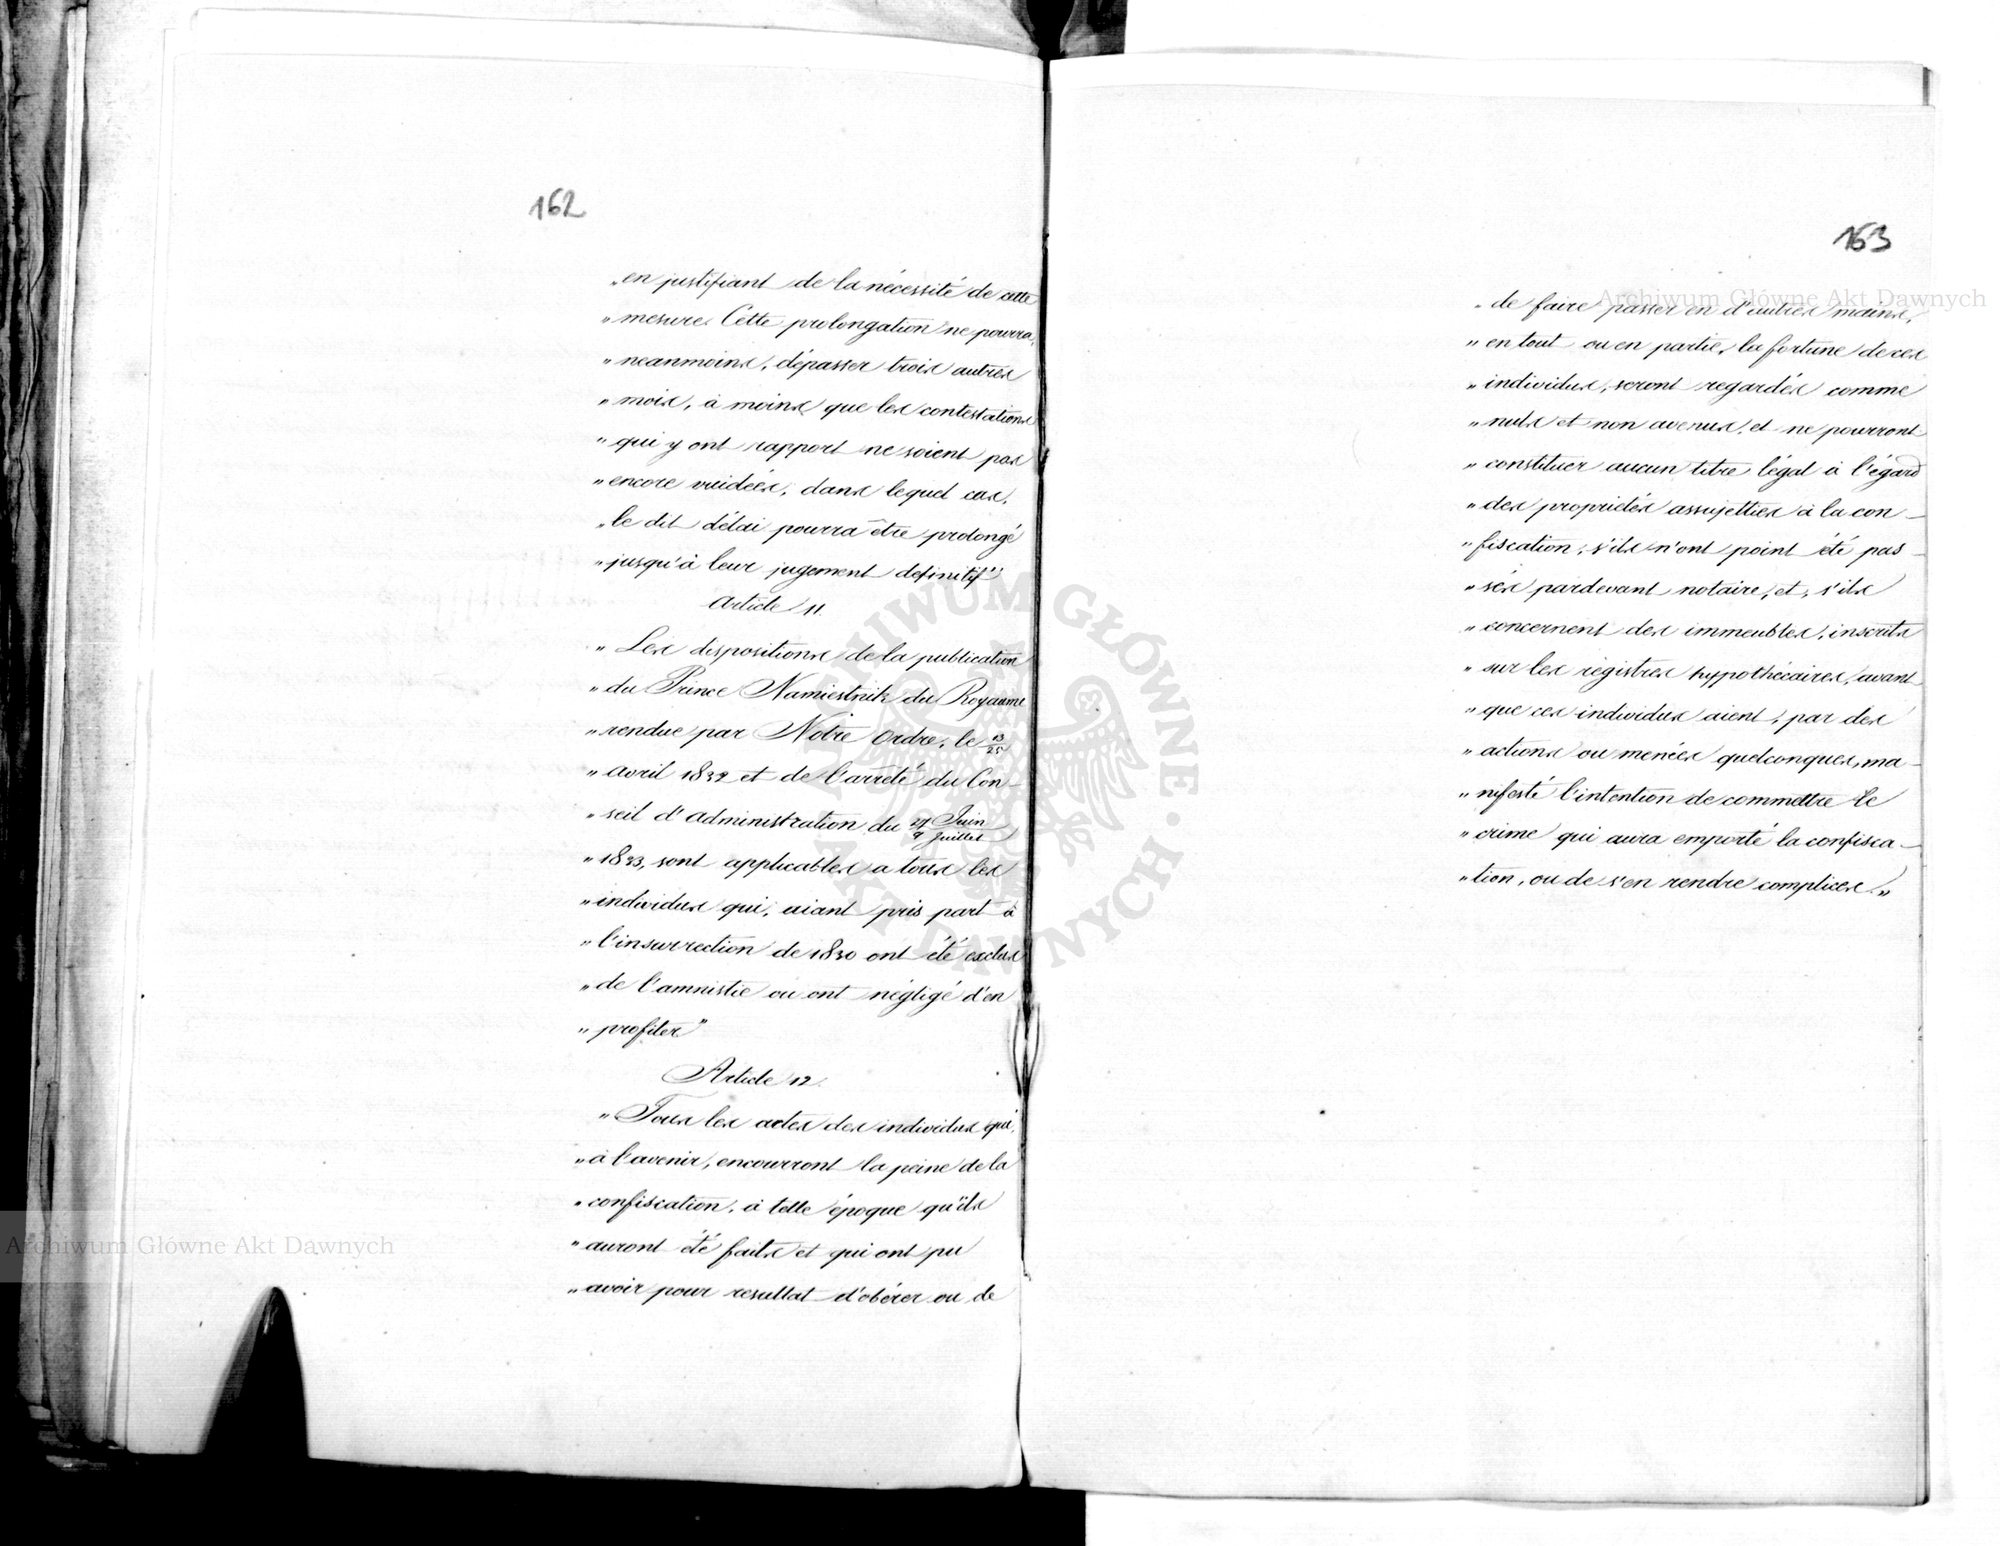 162
„en justifiant de la nécessité de cette
„mesure. Cette prolongation ne pourra,
„neanmoins, dépasser trois autres
„mois, à moins que les contestations
„qui y ont rapport ne soient pas
„encore vuidées, dans lequel cas,
„le dit délai pourra être prolongé
„jusqu'à leur jugement definitif"
Article 11.
„Les dispositions de la publication
„du Prince Namiestnik du Royaume
„rendue par Notre Ordre, le 13/25
„avril 1832 et de l'arrêté du Con-
„seil d'administration du 27 Juin/9 Juillet
„1833, sont applicables a tous les
„individus qui, aiant pris part à
„l'insurrection de 1830 ont été exclus
„de l'amnistie ou ont négligé d'en
„profiter"
Article 12.
„Tous les actes des individus qui,
„à l'avenir, encourront la peine de la
„confiscation, à telle époque qu'ils
„auront été faits et qui ont pu
„avoir pour resultat d'obérer ou de
163
„de faire passer en d'autres mains,
„en tout ou en partie, la fortune de ces
„individus, seront regardés comme
„nuls et non avenus, et ne pourront
„constituer aucun titre légal à l'égard
„des propriétés assujetties à la con-
„fiscation, s'ils n'ont point été pas-
„sés pardevant notaire, et, s'ils
„concernent des immeubles, inscrits
„sur les régistres hypothécaires, avant
„que ces individus aient, par des
„actions ou menées quelconques, ma-
„nifesté l'intention de commettre le
„crime qui aura emporté la confisca-
„tion, ou de s'en rendre complices."
Archiwum Główne Akt Dawnych
Archiwum Główne Akt Dawnych
ARCHIWUM GŁÓWNE AKT DAWNYCH